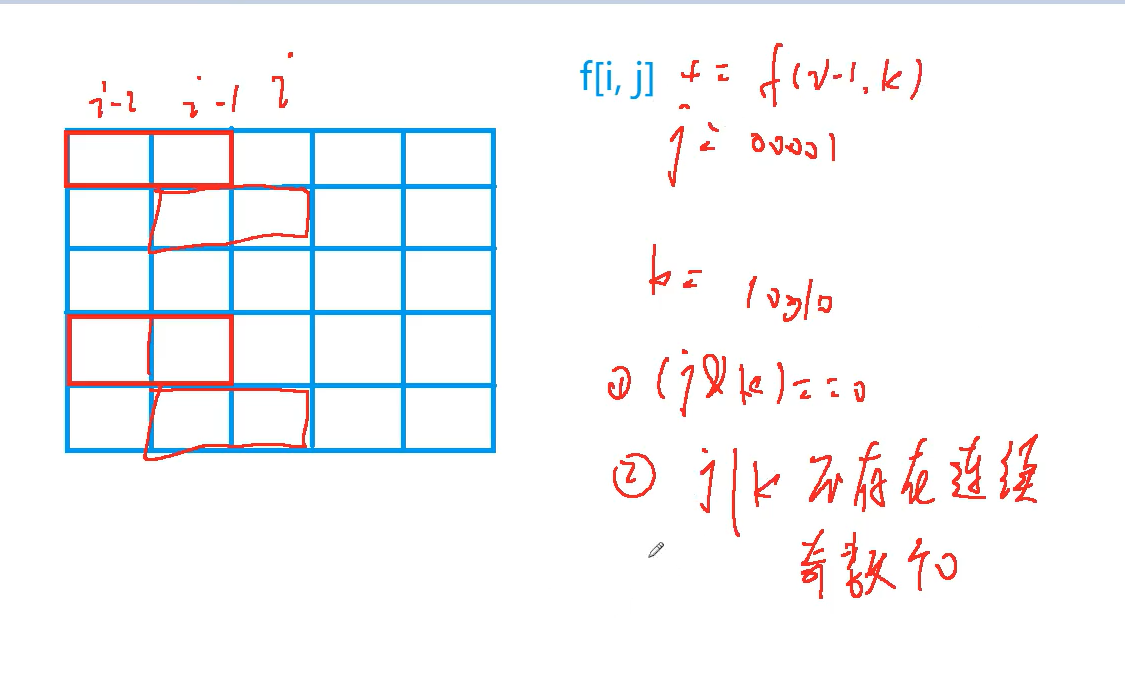 i-2 i-1 i
f[i, j] += f(i-1, k)
j = 00001
k = 10010
① (j & k) == 0
② j|k 不存在连续
奇数个0